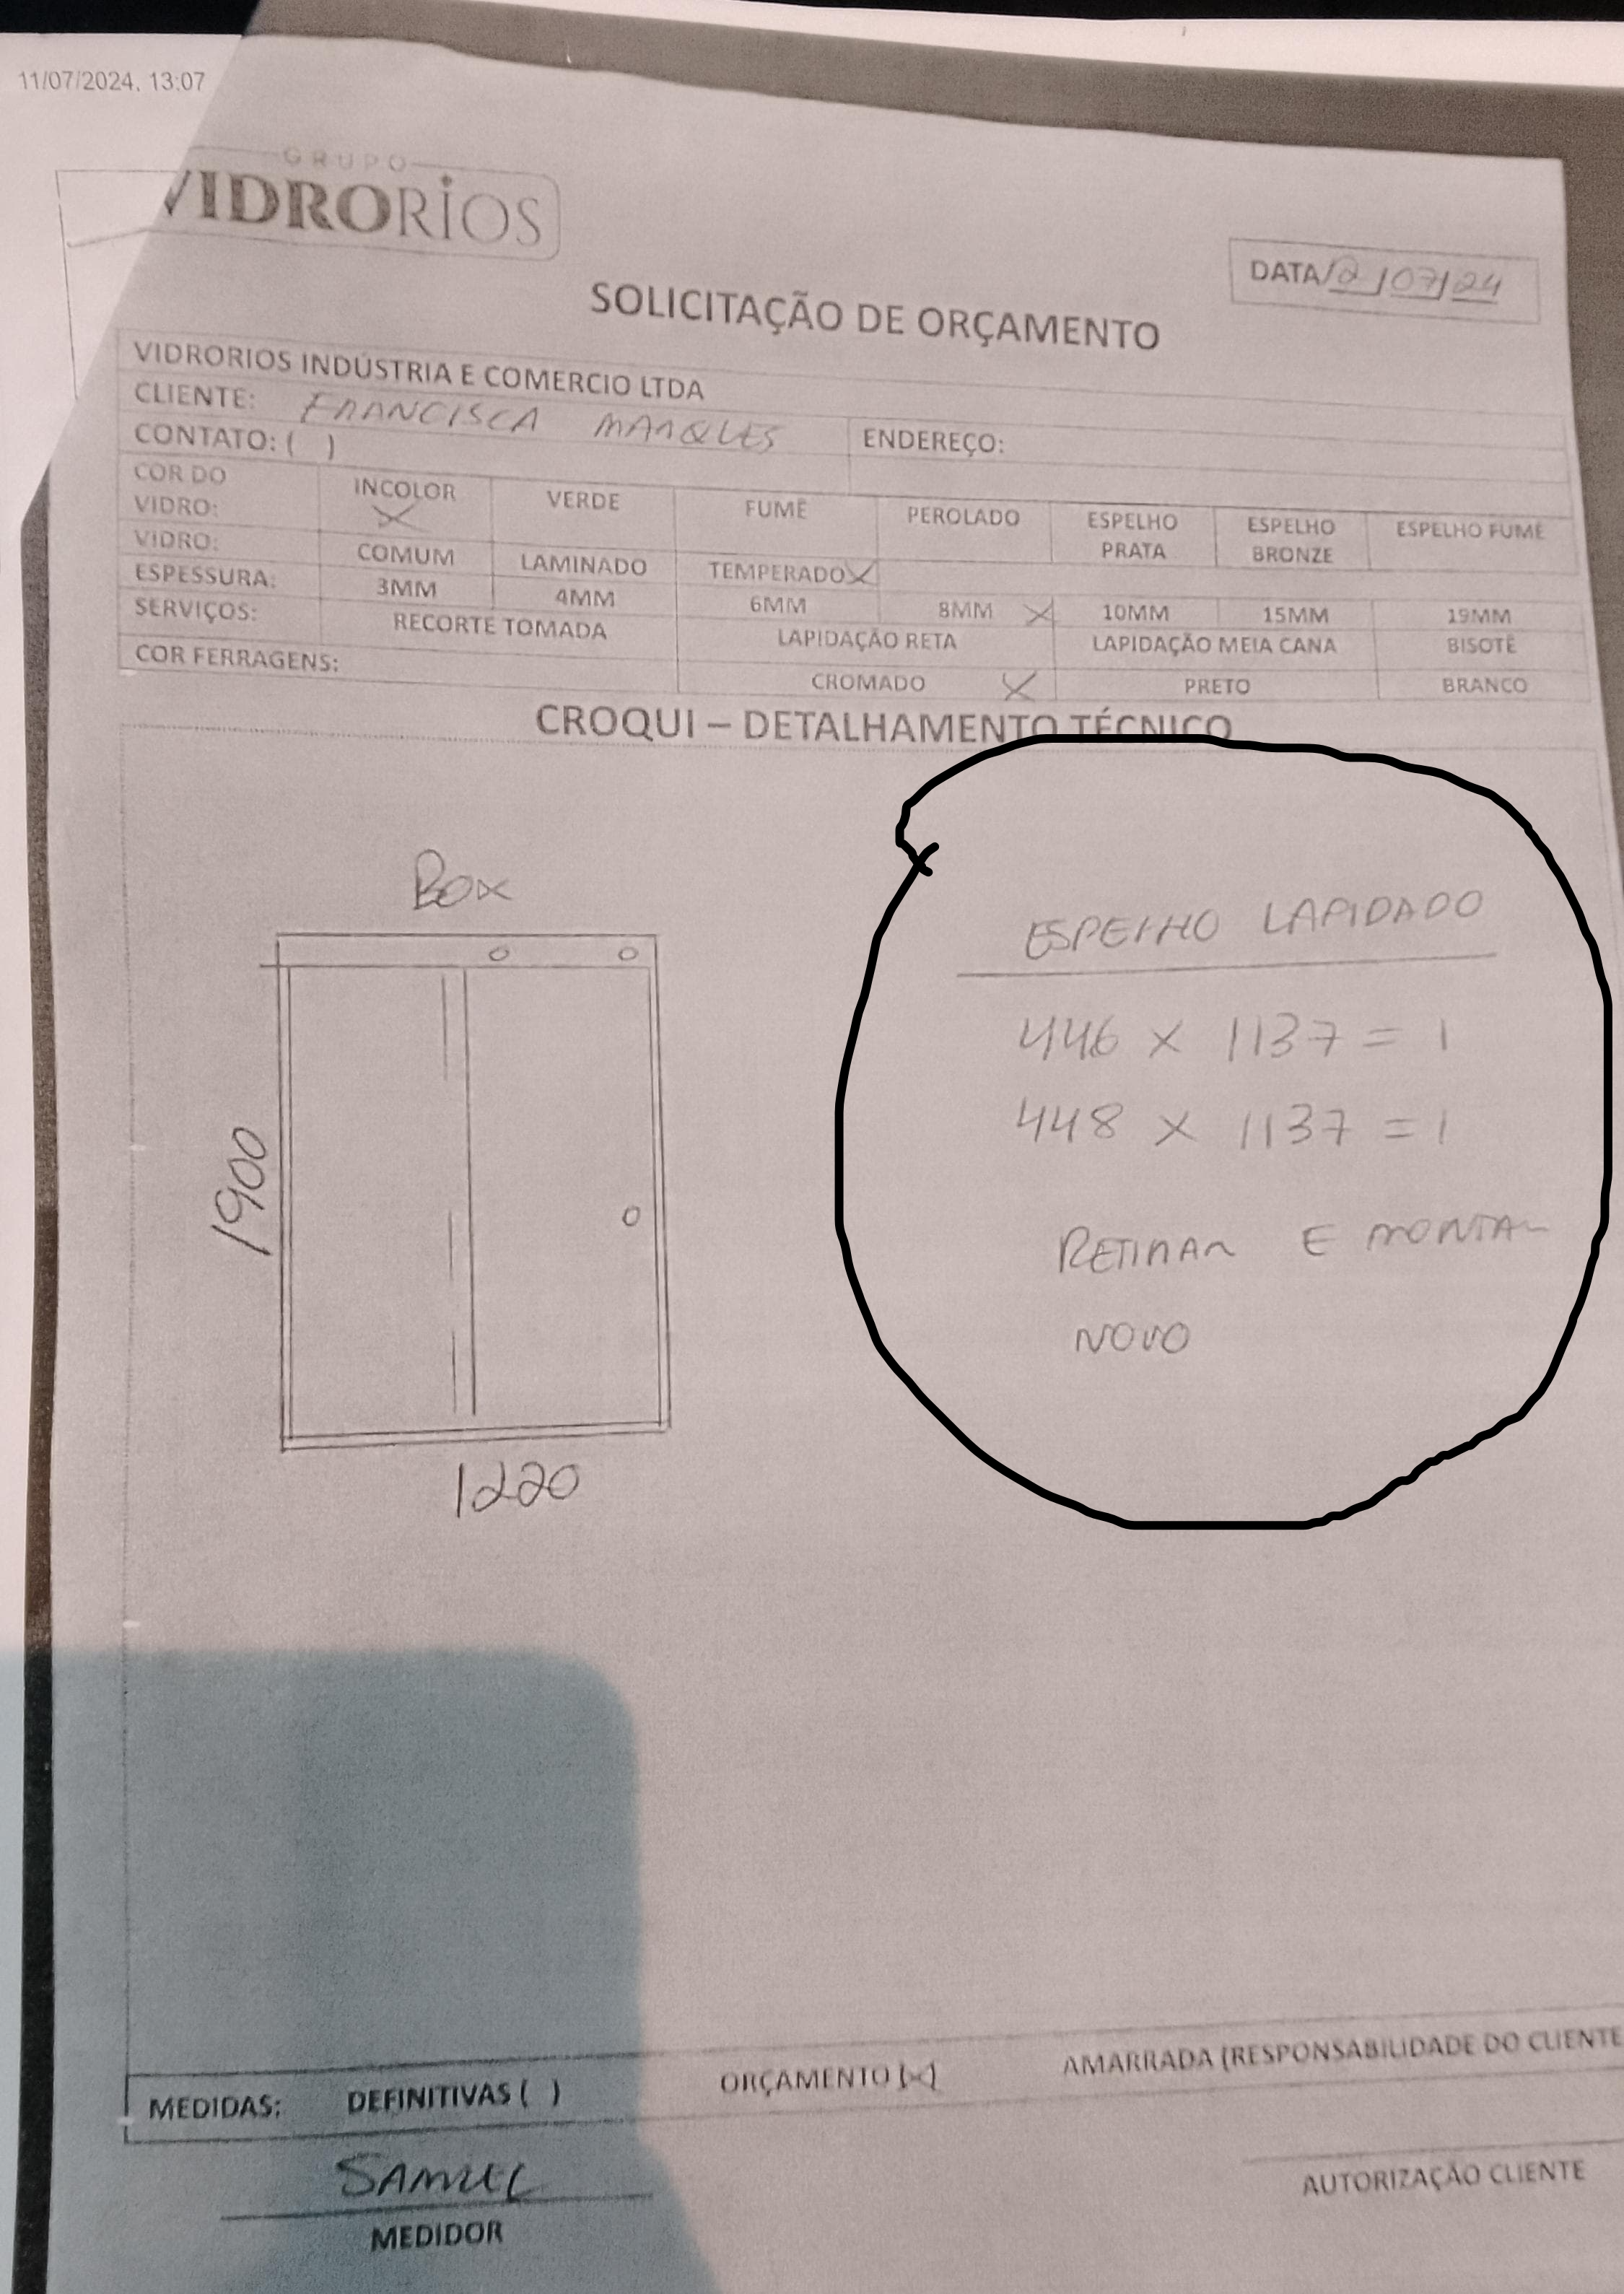 11/07/2024, 13:07
GRUPO
VIDRORIOS
DATA 12/07/24
SOLICITAÇÃO DE ORÇAMENTO
VIDRORIOS INDÚSTRIA E COMERCIO LTDA
CLIENTE: FRANCISCA MARQUES
CONTATO: ( ) ENDEREÇO:
COR DO VIDRO: INCOLOR X VERDE FUMÊ PEROLADO ESPELHO PRATA ESPELHO BRONZE ESPELHO FUMÊ
VIDRO: COMUM LAMINADO TEMPERADO X
ESPESSURA: 3MM 4MM 6MM 8MM X 10MM 15MM 19MM
SERVIÇOS: RECORTE TOMADA LAPIDAÇÃO RETA LAPIDAÇÃO MEIA CANA BISOTÊ
COR FERRAGENS: CROMADO X PRETO BRANCO
CROQUI – DETALHAMENTO TÉCNICO
BOX
1900
1220
ESPELHO LAPIDADO
446 X 1137 = 1
448 X 1137 = 1
RETIRAR E MONTAR
NOVO
MEDIDAS: DEFINITIVAS ( ) ORÇAMENTO (X) AMARRADA (RESPONSABILIDADE DO CLIENTE
SAMUEL
MEDIDOR
AUTORIZAÇÃO CLIENTE